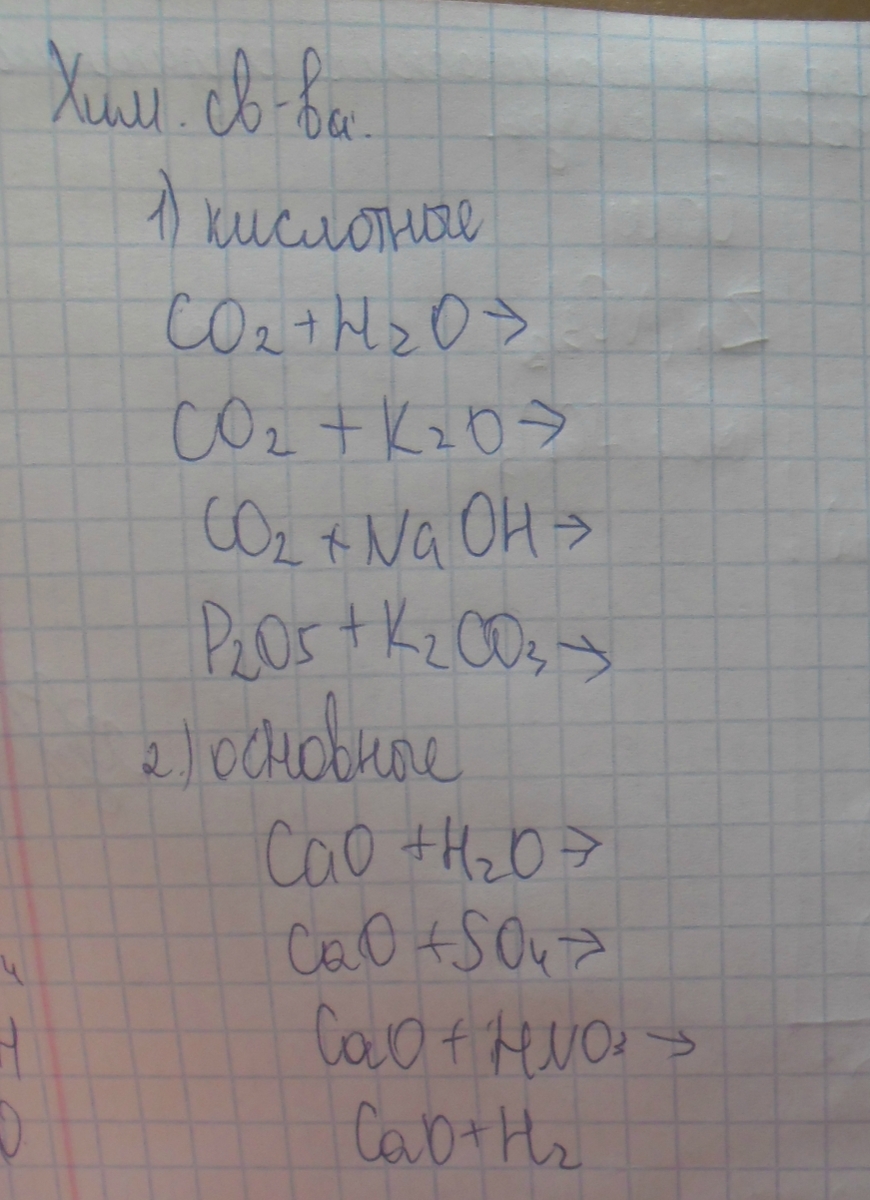 Хим. св-ва.
1) кислотные
CO2+H2O→
CO2 + K2O→
CO2 + NaOH→
P2O5 + K2CO3→
2.) основные
CaO + H2O→
CaO + SO4→
CaO + HNO3→
CaO+H2